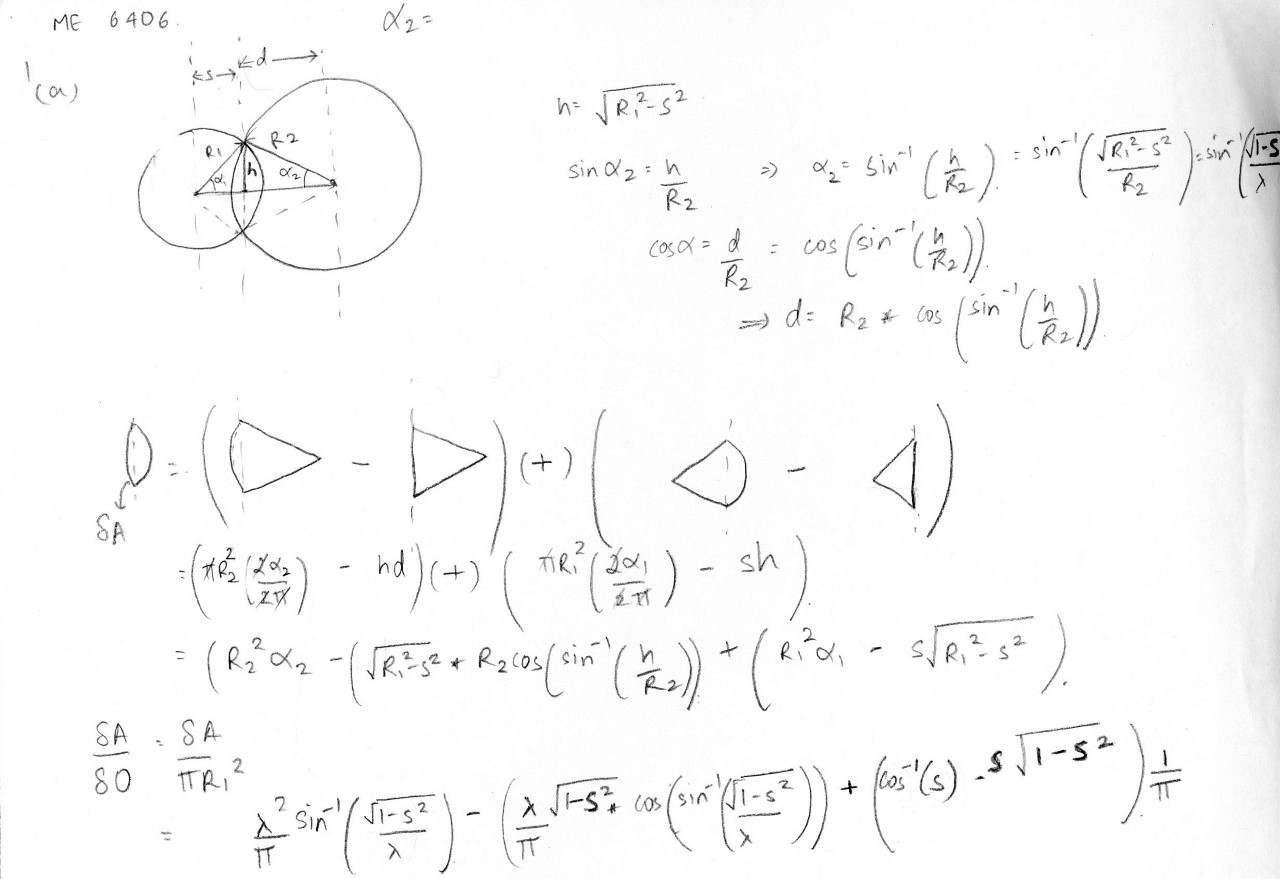 ME 6406.
α₂=
1(a)
s
d
R1
R2
α₁
h
α₂
h= √(R₁²-s²)
sin α₂ = h/R₂ ⇒ α₂= sin⁻¹(h/R₂). = sin⁻¹(√(R₁²-s²)/R₂) = sin⁻¹(√(1-s/λ
cosα = d/R₂ = cos(sin⁻¹(h/R₂)).
⇒ d= R₂ * cos(sin⁻¹(h/R₂)).
= ( - ) (+) ( - )
δA
= (πR₂²(2α₂/2π) - hd) (+) (πR₁²(2α₁/2π) - sh).
= (R₂²α₂ - (√(R₁²-s²) * R₂cos(sin⁻¹(h/R₂)) + (R₁²α₁ - s√(R₁²-s²)).
δA/δO = δA/πR₁²
= λ²/π sin⁻¹(√(1-s²)/λ) - (λ/π √(1-s²) * cos(sin⁻¹(√(1-s²)/λ)) + (cos⁻¹(s) - s√(1-s²)) 1/π